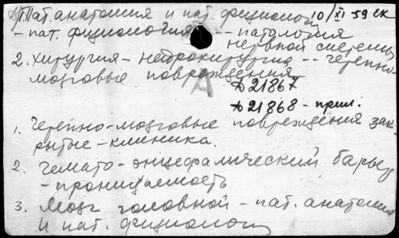 1) Пат. анатомия и пат. физиолог 10/XI 59 ск
- пат. физиология -- патология
нервной системы
2. хирургия - нейрохирургия -- черепно-
мозговые повреждения
А Д 21867
Д 21868 - прил.
1. Черепно-мозговые повреждения зак-
рытые - клиника.
2. гемато-энцефалический барьер
- проницаемость
3. Мозг головной - пат. анатомия
и пат. физиолог